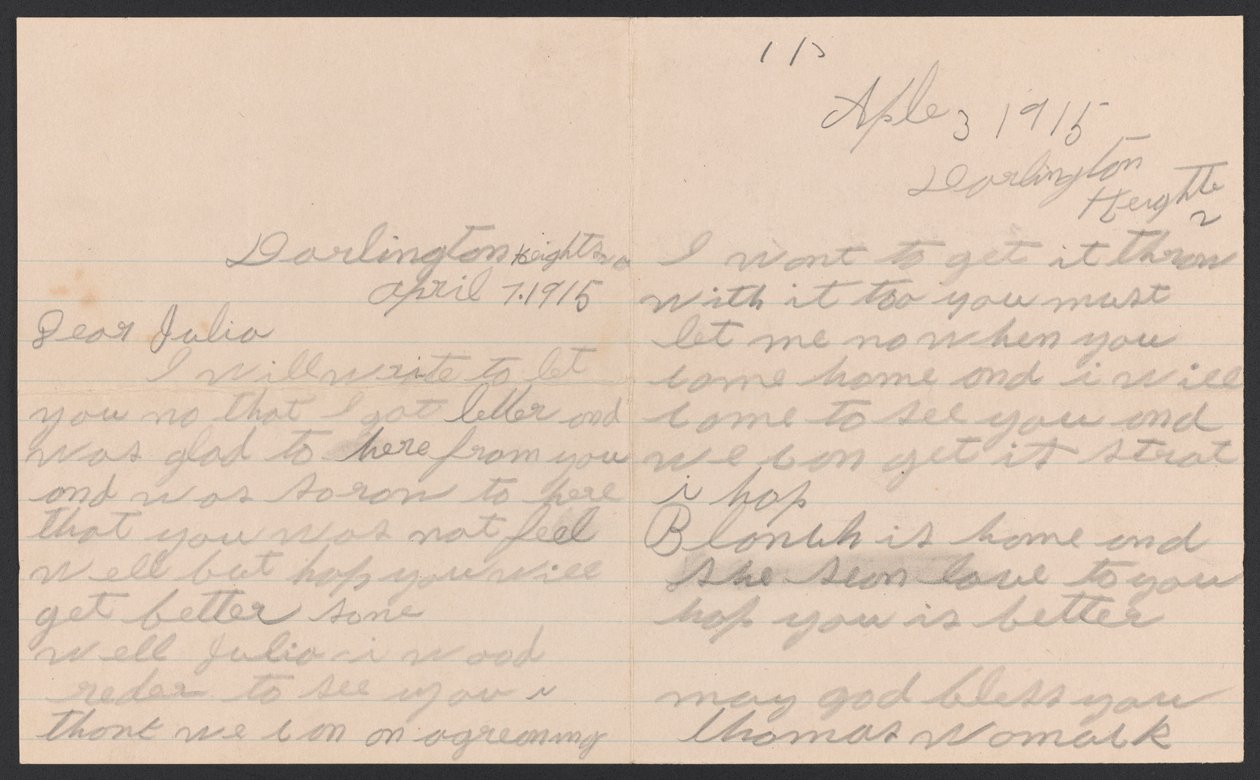 Darlington Heights va
april 7. 1915
Dear Julia
I will write to let
you no that I got letter and
was glad to here from you
and was soron to here
that you was not feel
well but hop you will
get better sone
well Julia i wood
reder to see you i
thont we can on agreoning
Aple 3 1915
Darlington
Heights
I wont to get it throw
with it too you must
let me no when you
come home and i will
come to see you and
we con get it strat
i hop
Blonch is home and
she seon love to you
hop you is better
may god bless you
thomas Womack